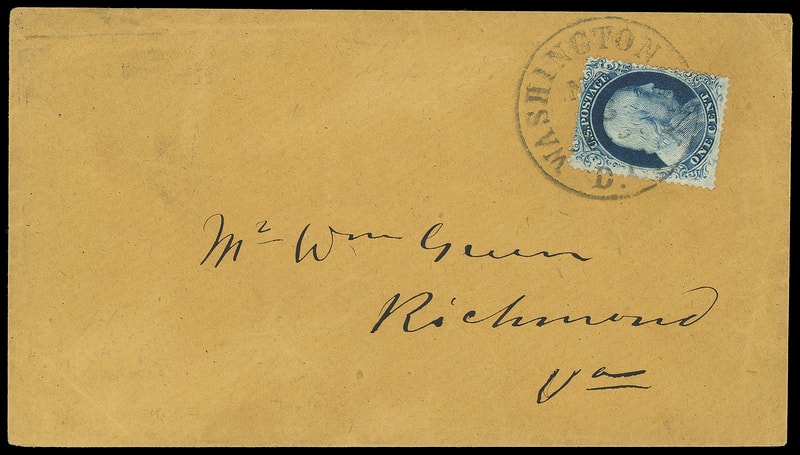 WASHINGTON
D.
U.S. POSTAGE
ONE CENT
Mr Wm Green
Richmond
Va